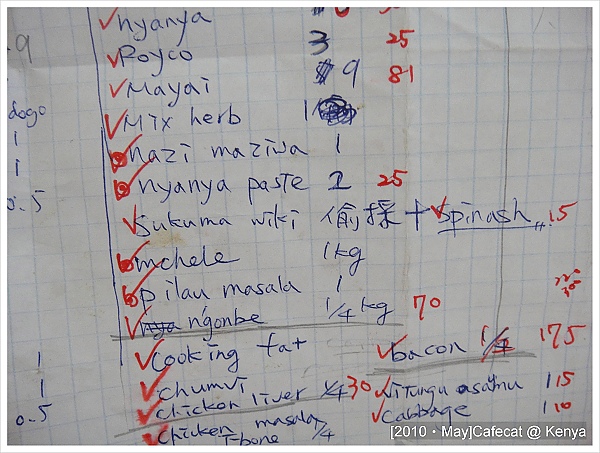 nyanya
Royco 3 25
Mayai 9 81
Mix herb 1
dogo
nazi maziwa 1
1
nyanya paste 2 25
1
0.5
sukuma wiki 偷採 + spinash 15
mchele 1kg
pilau masala 1
n'gonbe 1/4 kg 70
cooking fat
bacon 175
1
chumvi
1
chicken liver 1/4 30
115
0.5
cabbage 110
chicken masala
T-bone 1/4
[2010・May]Cafecat @ Kenya